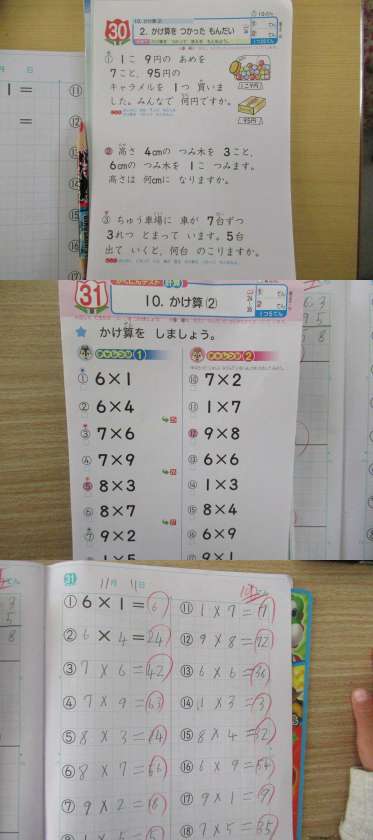 月 日
1 =
⑪
=
⑫
⑭
⑮
⑯
⑰
30
10. かけ算 ②
2. かけ算を つかった もんだい
① 1こ 9円の あめを
7こと、95円の
キャラメルを 1つ 買いま
した。みんなで 何円ですか。
1こ9円
95円
② 高さ 4cmの つみ木を 3こと、
6cmの つみ木を 1こ つみます。
高さは 何cmに なりますか。
③ ちゅう車場に 車が 7台ずつ
3れつ とまって います。5台
出て いくと、何台 のこりますか。
31
計算
10. かけ算 (2)
かけ算を しましょう。
チャレンジ 1
① 6×1
② 6×4
③ 7×6
④ 7×9
⑤ 8×3
⑥ 8×7
⑦ 9×2
1×5
チャレンジ 2
⑩ 7×2
⑪ 1×7
⑫ 9×8
⑬ 6×6
⑭ 1×3
⑮ 8×4
⑯ 6×9
⑰ 9×1
6 3
9 5
8
31
11月 11日
① 6 × 1 = 6
② 6 × 4 = 24
③ 7 × 6 = 42
④ 7 × 9 = 63
⑤ 8 × 3 = 24
⑥ 8 × 7 = 56
⑦ 9 × 2 = 18
1 × 5 = 5
⑪ 1 × 7 = 7
⑫ 9 × 8 = 72
⑬ 6 × 6 = 36
⑭ 1 × 3 = 3
⑮ 8 × 4 = 32
⑯ 6 × 9 = 54
⑰ 9 × 1 = 9
⑱ 7 × 5 = 35